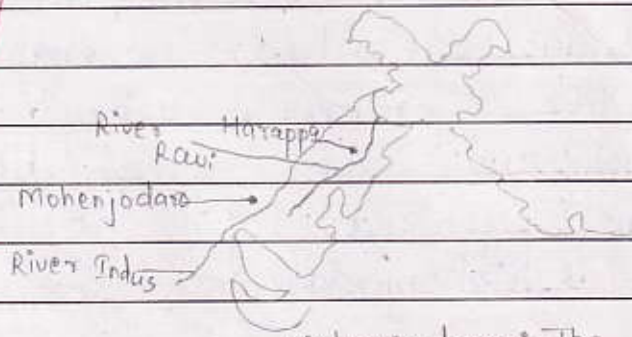 River Harappa
Ravi
Mohenjodaro
River Indus
The